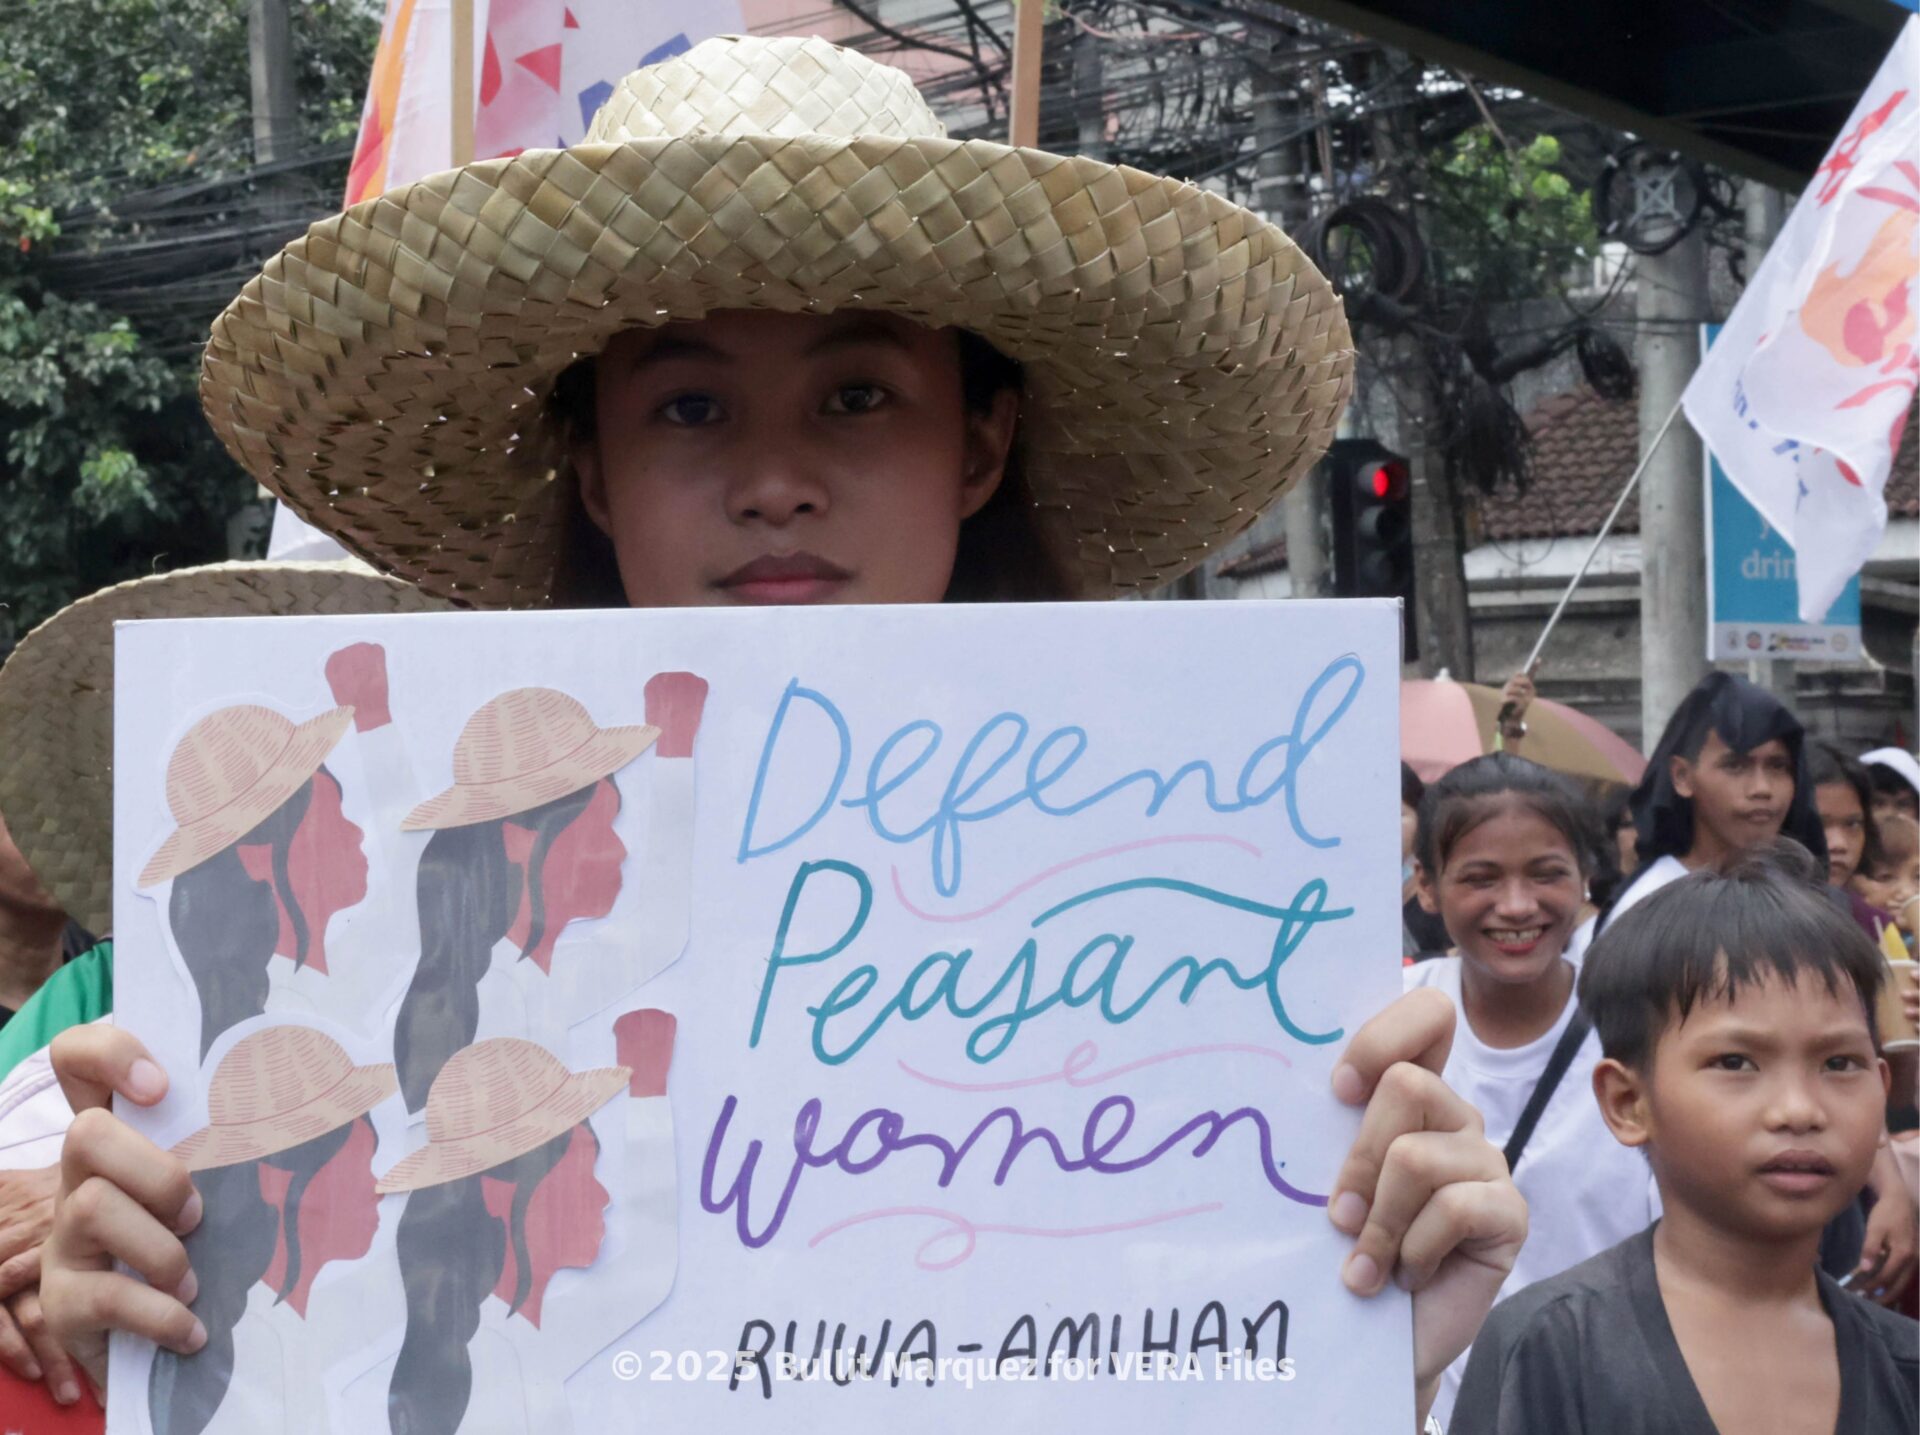 drin
Defend
Peasant
Women
RUWA-AMIHAN
© 2025 Bullit Marquez for VERA Files